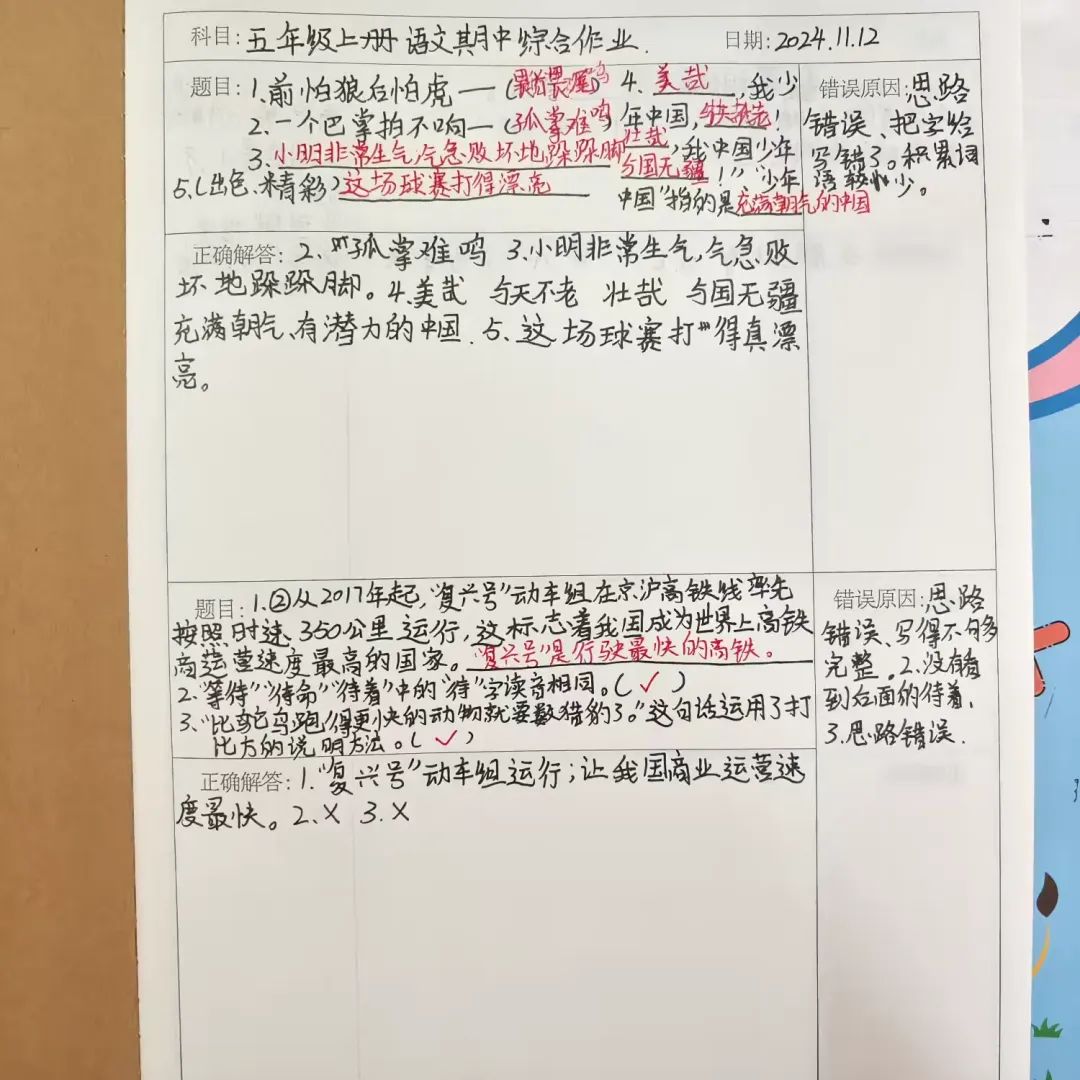 科目: 五年级上册 语文期中综合作业.
日期: 2024.11.12
题目: 1.前怕狼后怕虎—(
2.一个巴掌拍不响—(孤掌难鸣)
3.小明非常生气,气急败坏地跺跺脚
5.(出色、精彩)这场球赛打得漂亮
4. 美哉,我少
年中国, !
壮哉,我中国少年
与国无疆!”“少年
中国”指的是充满朝气的中国
错误原因: 思路
错误、把字给
写错了。积累词
语较少。
正确解答: 2. 孤掌难鸣 3.小明非常生气,气急败
坏地跺跺脚。4.美哉 与天不老 壮哉 与国无疆
充满朝气、有潜力的中国. 5、这场球赛打得真漂
亮。
题目: 1.②从2017年起,“复兴号”动车组在京沪高铁线率先
按照时速350公里运行,这标志着我国成为世界上高铁
商运营速度最高的国家。“复兴号”是行驶最快的高铁。
2.“等待”“待命”“待着”中的“待”字读音相同。(✓)
3、“比鸵鸟跑得更快的动物就要数猎豹了。”这句话运用了打
比方的说明方法。(✓)
错误原因: 思路
错误、写得不够
完整。2.没有看
到后面的待着、
3.思路错误.
正确解答: 1.“复兴号”动车组运行;让我国商业运营速
度最快。2.X 3.X